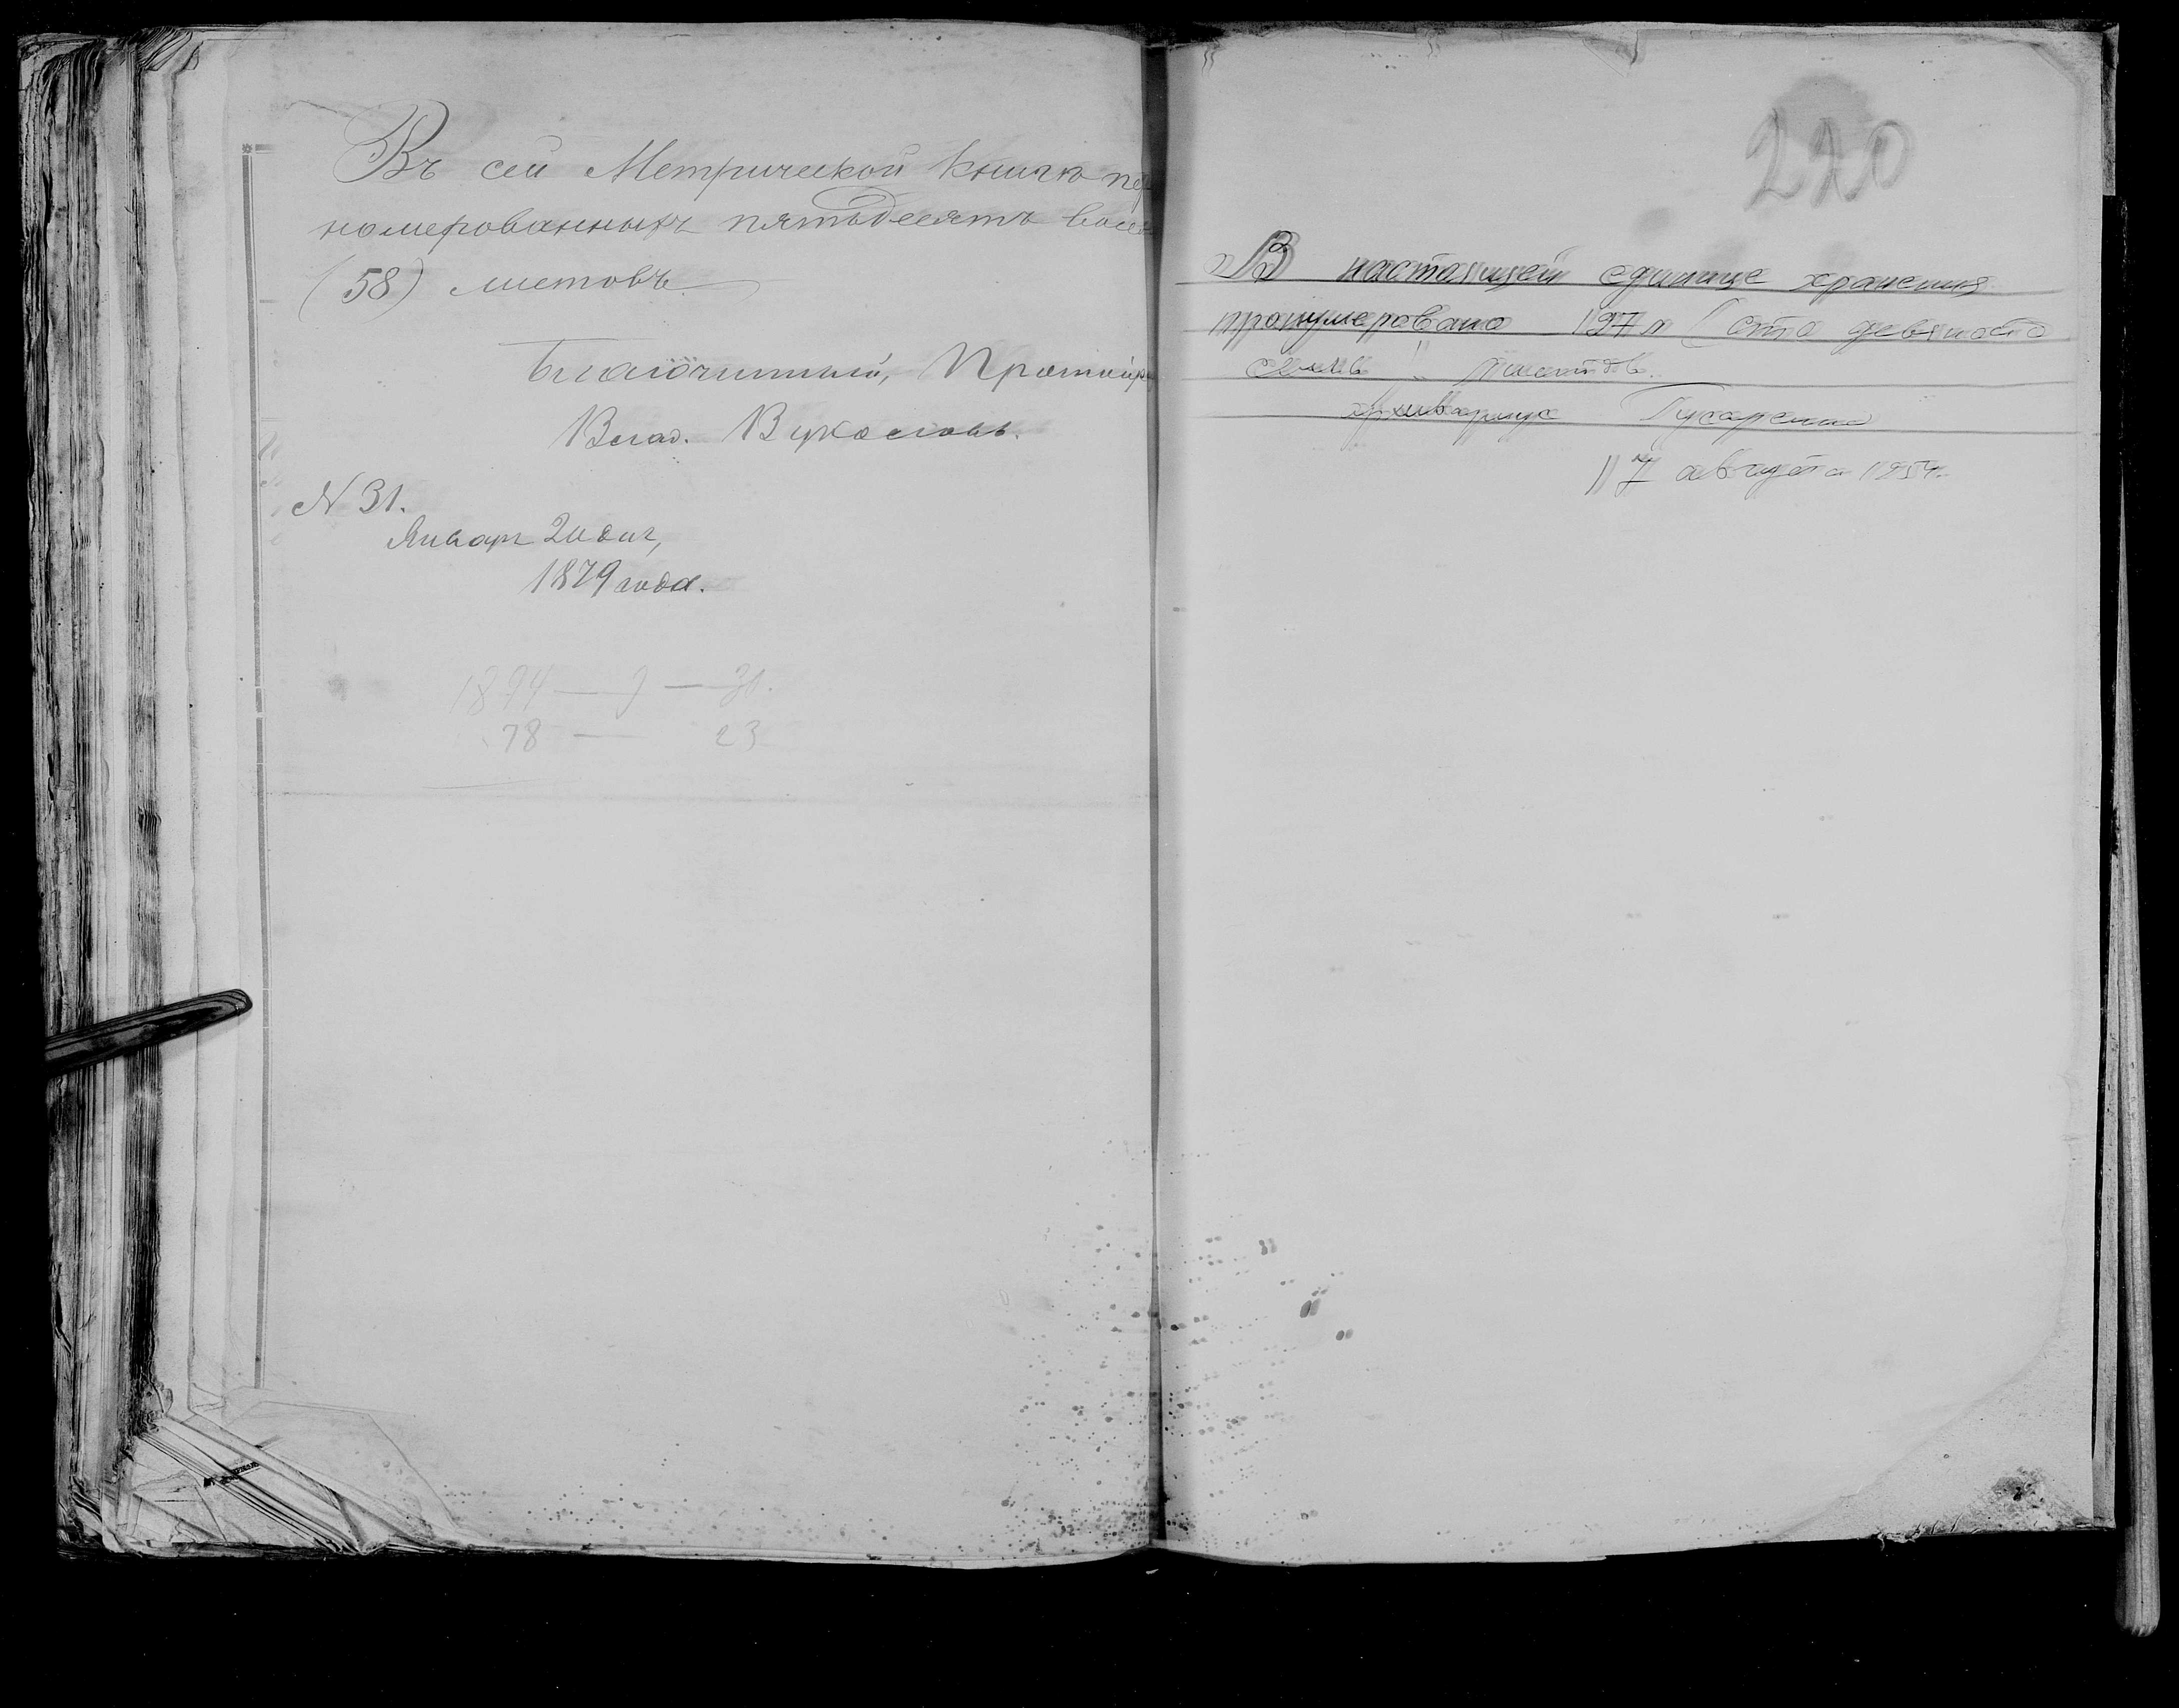 Въ сей Метрической книгѣ пе
номерованныхъ пятьдесятъ восем
(58) листовъ
Благочинный, Протоіер
Влад. Вукославъ.
N 31.
Января 2й дня,
1879 года.
1894 — 9 — 31.
78 — 23
220
В настоящей единице хранения
пронумеровано 197 л (сто девяносто
семь листов.
Архивариус Гусарский
17 августа 1954.